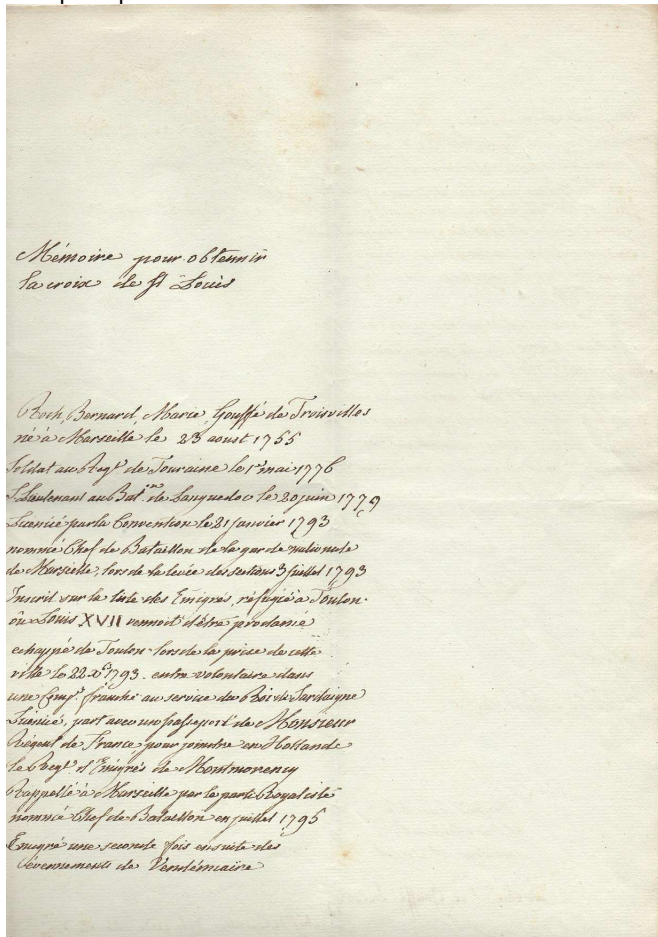 Mémoire pour obtennir
la croix de St Louis
Roch, Bernard, Marie, Gouffé de Troisvilles
né à Marseille le 23 aoust 1755
Soldat au Regt de Touraine le 1er mai 1776
S. Lieutenant au Baton de Languedoc le 20 juin 1779
Licencié par la Convention le 21 janvier 1793
nommé Chef de Bataillon de la garde nationale
de Marseille, lors de la levée des sections 3 juillet 1793
Inscrit sur la liste des Emigrés, réfugié à Toulon
où Louis XVII vennoit d'être proclamé
echappé de Toulon lors de la prise de cette
ville le 22 Xbre 1793. entre volontaire dans
une Compe franche au service du Roi de Sardaigne
Licencié, part avec un passeport de Monsieur
Régent de France, pour joindre en Hollande
le Regt d'Emigrés de Montmorency
Rappellé à Marseille par le parti Royaliste
nommé Chef de Bataillon en juillet 1795
Emigré une seconde fois ensuite des
évennements de Vendémiaire